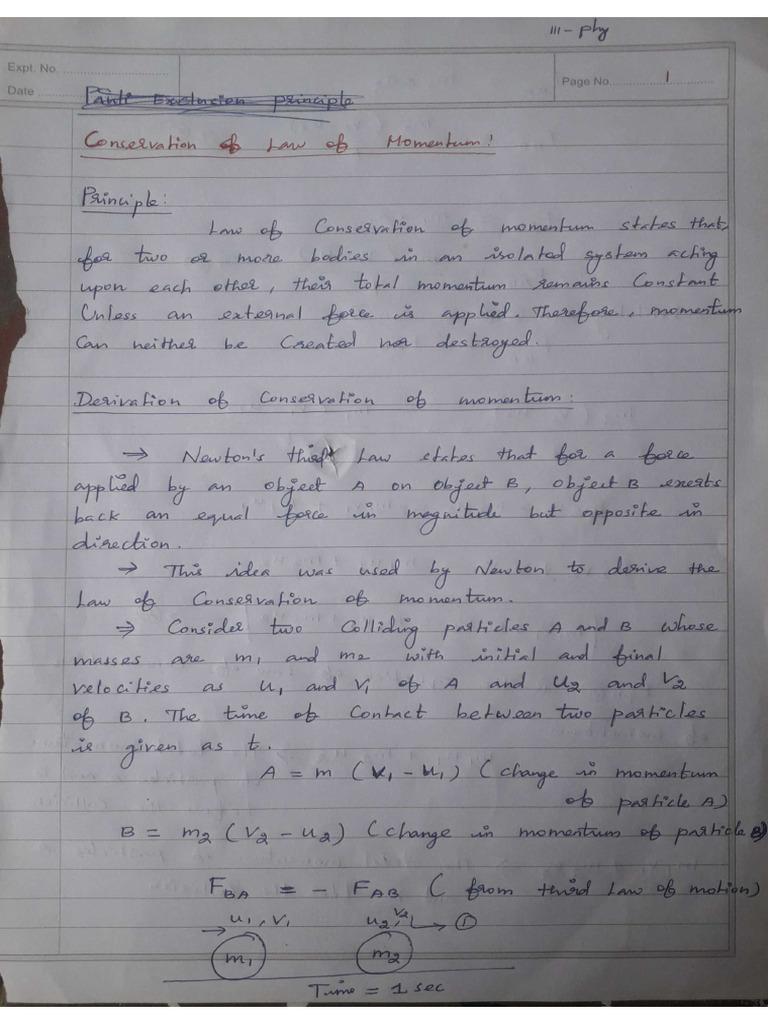 III - phy
Expt. No.
Page No. 1
Date
Pauli Exclusion principle
Conservation of Law of Momentum!
Principle:
Law of Conservation of momentum states that,
for two or more bodies in an isolated system acting
upon each other, their total momentum remains Constant
Unless an external force is applied. Therefore, momentum
Can neither be Created nor destroyed.
Derivation of Conservation of momentum:
→ Newton's third Law states that for a force
applied by an object A on object B, object B exerts
back an equal force in magnitude but opposite in
direction.
→ This idea was used by Newton to derive the
Law of Conservation of momentum.
→ Consider two Colliding particles A and B whose
masses are m₁ and m₂ with initial and final
velocities as u₁ and v₁ of A and u₂ and v₂
of B. The time of Contact between two particles
is given as t.
A = m (v₁ - u₁) (change in momentum
of particle A)
B = m₂ (v₂ - u₂) (change in momentum of particle B)
F_BA = - F_AB ( from third Law of motion)
→ u₁, v₁ u₂, v₂ → ①
m₁ m₂
Time = 1 sec